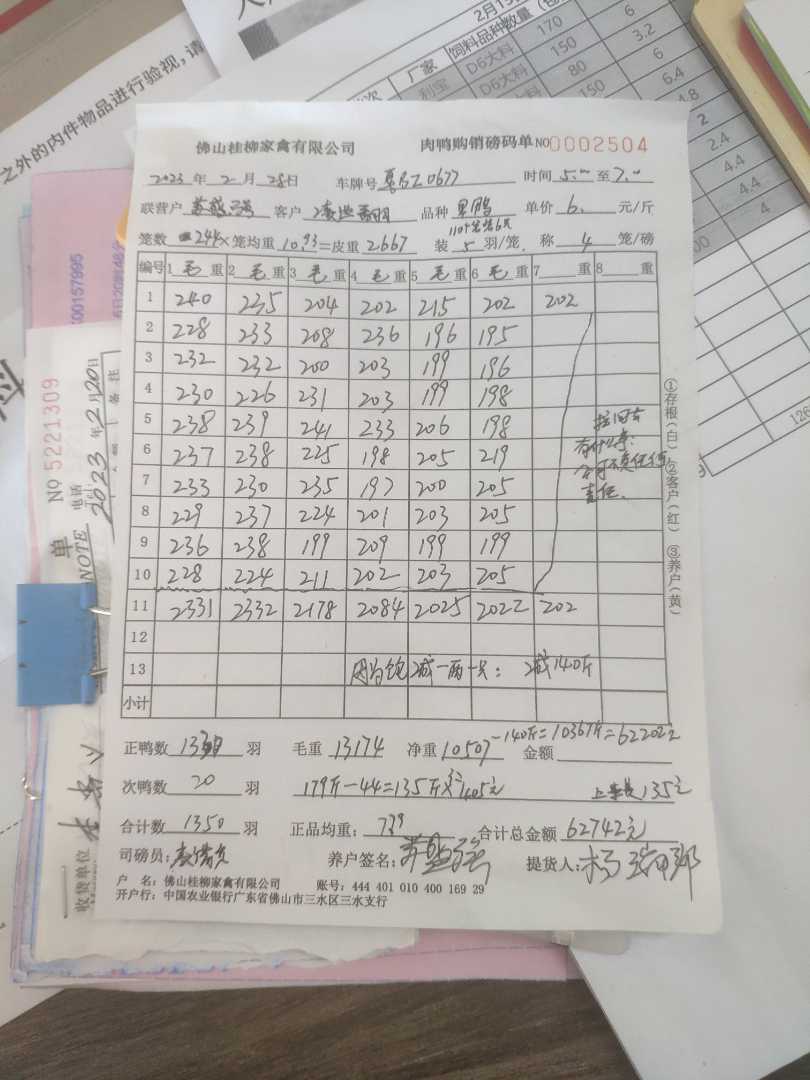 2月15
饲料品种数量(包
厂家
D6大料 170 6
利宝 D6大料 150 3.2
80 6
150 6.4
4.8
2
2.4
4.4
4.4
4
之外的内件物品进行验视,请
佛山桂柳家禽有限公司 肉鸭购销磅码单 NO0002504
2023年2月28日 车牌号 粤BZ0677 时间5:00至7:00
联营户 客户 品种 单价6.元/斤
笼数244×笼均重10.93=皮重2667 装5羽/笼, 称4笼/磅
编号 1毛重 2毛重 3毛重 4毛重 5毛重 6毛重 7重 8重
1 240 235 204 202 215 202 202
2 228 233 208 236 196 195
3 232 232 200 203 199 196
4 230 226 231 203 199 198
5 238 239 241 233 206 198
6 237 238 225 198 205 219
7 233 230 235 197 200 205
8 229 237 224 201 203 205
9 236 238 199 209 199 199
10 228 224 211 202 203 205
11 2331 2332 2178 2084 2025 2022 202
12
13 因为饱减一两一只:减140斤
小计
拉回去
有什么事:
公司不负任何
责任.
①存根(白)②客户(红)③养户(黄)
正鸭数 羽 毛重13174 净重10507-140斤=10367斤=62202元 金额
次鸭数20羽 179斤-44=135斤×3元405元 上车费135元
合计数1350羽 正品均重:779 合计总金额62742元
司磅员: 养户签名: 提货人:
户 名:佛山桂柳家禽有限公司 账号:444 401 010 400 169 29
开户行:中国农业银行广东省佛山市三水区三水支行
X00157995
6日20时46分
NO 5221309
2023年2月20日
电话
Tel:
备注
单
NOTE
收货单位
126